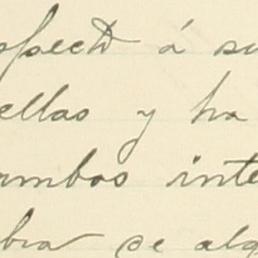 specto á su
ellas y ha
ambos inte
bra se alg